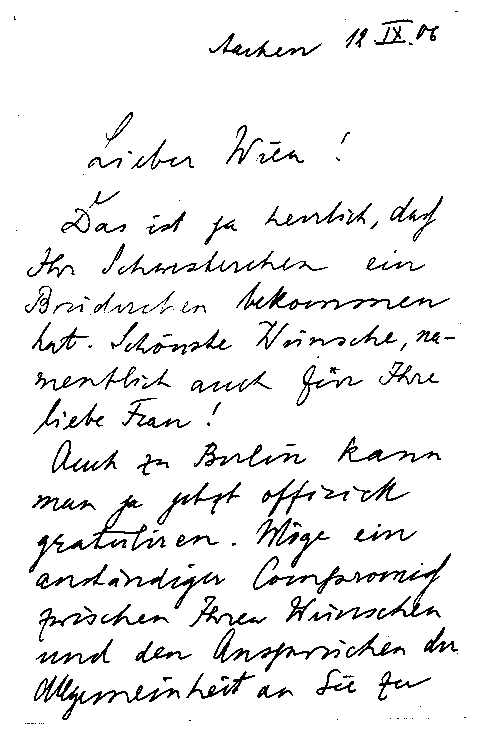 Aachen 12.IX.06
Lieber Wien!
Das ist ja herrlich, daß
Ihr Schwesterchen ein
Brüderchen bekommen
hat. Schönste Wünsche, na-
mentlich auch für Ihre
liebe Frau!
Auch zu Berlin kann
man ja jetzt offiziell
gratuliren. Möge ein
anständiger Compromiß
zwischen Ihren Wünschen
und den Ansprüchen der
Allgemeinheit an Sie zu